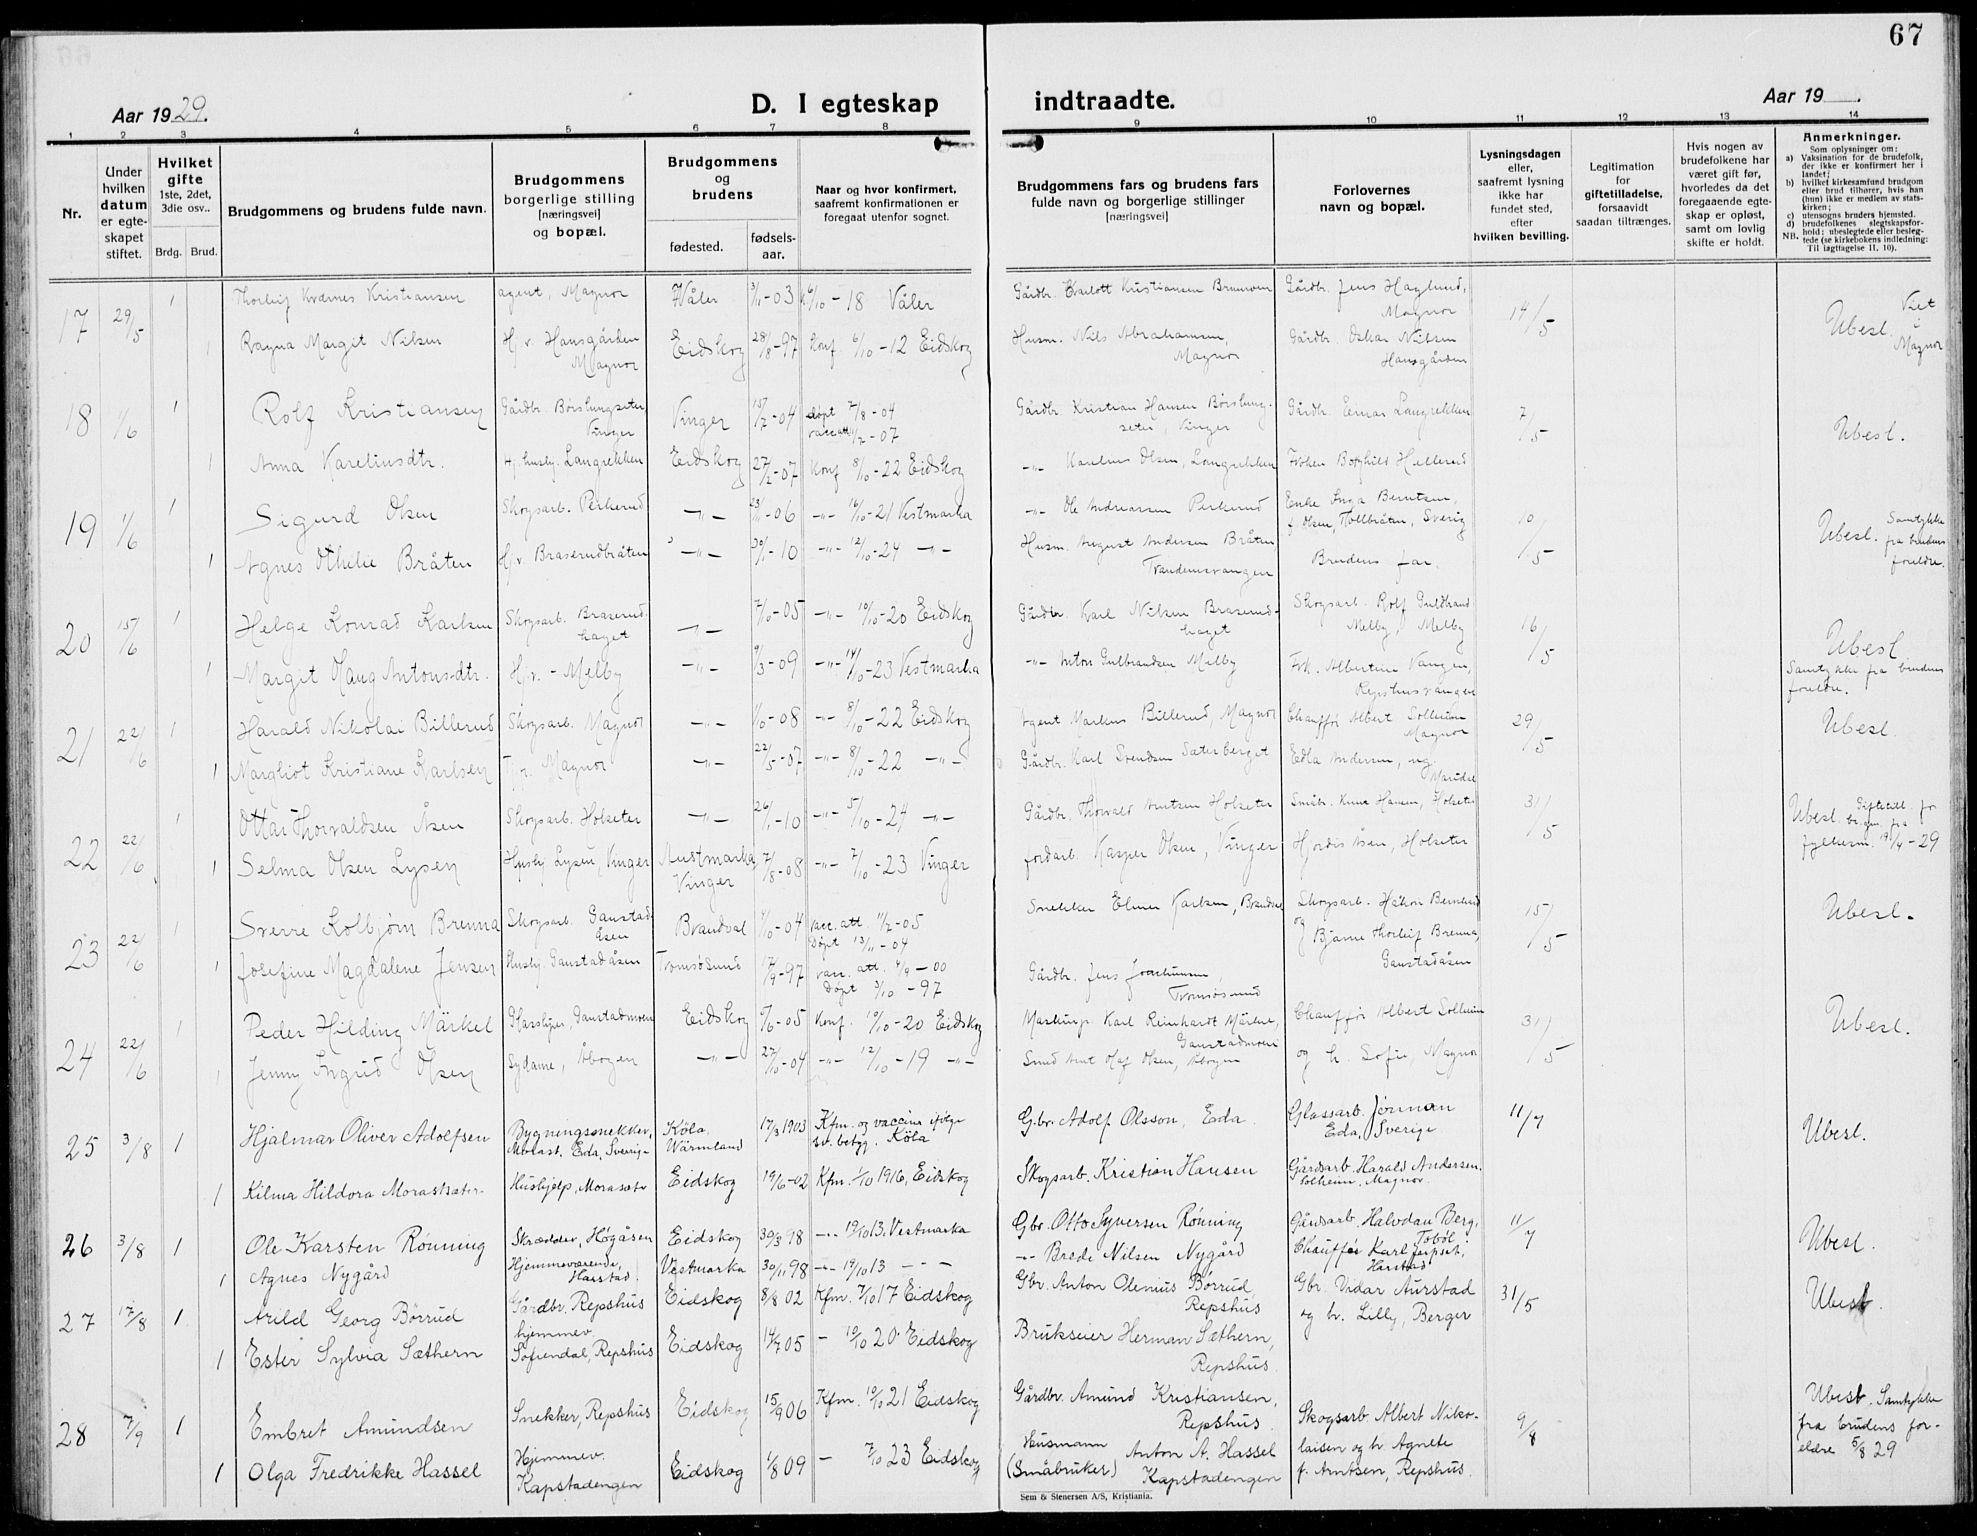 67
Aar 1929.
D. I egteskap
indtraadte.
Aar 19 .
1 2 3 4 5 6 7 8 9 10 11 12 13 14
Nr.
Under
hvilken
datum
er egte-
skapet
stiftet.
Hvilket
gifte
1ste, 2det,
3die osv..
Brdg. Brud.
Brudgommens og brudens fulde navn.
Brudgommens
borgerlige stilling
[næringsvei]
og bopæl.
Brudgommens
og
brudens
fødested.
fødsels-
aar.
Naar og hvor konfirmert,
saafremt konfirmationen er
foregaat utenfor sognet.
Brudgommens fars og brudens fars
fulde navn og borgerlige stillinger
[næringsvei]
Forlovernes
navn og bopæl.
Lysningsdagen
eller,
saafremt lysning
ikke har
fundet sted,
efter
hvilken bevilling.
Legitimation
for
giftetilladelse,
forsaavidt
saadan tiltrænges.
Hvis nogen av
brudefolkene har
været gift før,
hvorledes da det
foregaaende egte-
skap er opløst,
samt om lovlig
skifte er holdt.
Anmerkninger.
Som oplysninger om:
a) Vaksination for de brudefolk,
der ikke er konfirmert her i
landet;
b) hvilket kirkesamfund brudgom
eller brud tilhører, hvis han
(hun) ikke er medlem av stats-
kirken;
c) utensogns bruders hjemsted.
d) brudefolkenes slegtskapsfor-
hold; ubeslegtede eller besleg-
tede (se kirkebokens indledning:
Til iagttagelse 11, 10).
NB.
17 29/5 1 Thorleif Kværnes Kristiansen agent, Magnor Våler 3/11-03 6/10-18 Våler Gårdbr. Karlott Kristiansen Gårdbr. Jens Haglund, Magnor 14/5 Ubesl. Viet i Magnor
1 Ragna Margit Nilsen H.v. Hansgården Magnor Eidskog 28/8-97 Konf. 6/10-12 Eidskog Husm. Nils Abrahamsen, Magnor Gårdbr. Oskar Nilsen Hansgården
18 1/6 1 Rolf Kristiansen Gårdbr. Børslungseter, Vinger Vinger 15/7-04 døpt 7/8-04 vacc.att. -07 Gårdbr. Kristian Hansen Børslungseter, Vinger Gårdbr. Einar Langrekken 7/5 Ubesl.
1 Anna Kareliusdtr. Langrekken Eidskog 27/2-07 Konf 8/10-22 Eidskog -"- Karelius Olsen, Langrekken Frøken Borghild Hellerud
19 1/6 1 Sigurd Olsen Skogsarb. Perkerud -"- 23/11-06 -"- 16/10-21 Vestmarka -"- Ole Andreassen Perkerud Enke Inga Berntsen, f. Olsen, Tollbråten, Sverig 10/5 Ubesl. Samtykke fra brudens foreldre.
1 Agnes Othelie Bråten H.v. Braserudbråten -"- -10 -"- 12/10-24 -"- Husm. August Andersen Bråten Brudens far.
20 15/6 1 Helge Konrad Karlsen Skogsarb. Braserud-haget -"- 7/10-05 -"- 10/10-20 Eidskog Gårdbr. Karl Nilsen Braserud-haget Skogsarb. Rolf Guldbrand Melby, Melby 16/5 Ubesl.
1 Margit Haug Antonsdtr. H.v. - Melby -"- 9/3-09 -"- 14/10-23 Vestmarka -"- Anton Gulbrandsen Melby Frk. Albertine Vangen, Repshusvangen Samtykke fra brudens foreldre.
21 22/6 1 Harald Nikolai Billerud Skogsarb. Magnor -"- -08 -"- 8/10-22 Eidskog Agent Markus Billerud, Magnor Chauffør Albert Solheim Magnor 29/5 Ubesl.
1 Margliot Kristiane Karlsen Magnor -"- 22/5-07 -"- 8/10-22 -"- Gårdbr. Karl Svendsen Sæterberget Edla Andersen,
22 22/6 1 Ottar Thorvaldsen Åsen Skogsarb. Holseter -"- 26/1-10 -"- 5/10-24 -"- Gårdbr. Thorvald Arntsen Holseter Småbr. Hansen, Holseter 31/5 Ubesl. fra fylkesm. 19/4-29
1 Selma Olsen Lysen Lysen, Vinger Austmarka Vinger 7/8-08 -"- 7/10-23 Vinger Jordarb. Kasper Olsen, Vinger Hjørdis Åsen, Holseter
23 22/6 1 Sverre Kolbjørn Brenna Skogsarb. Ganstad-åsen Brandval -04 vacc. att. 11/2-05 Døpt 13/11-04 Snekker Elmer Karlsen, Brandval Skogsarb. Håkon Bernhard og Bjarne Thorleif Brenna, Ganstadåsen 15/5 Ubesl.
1 Josefine Magdalene Jensen Husbj. Ganstadåsen Tromsøsund 17/9-97 vacc. att. 4/9-00 Døpt 3/10-97 Gårdbr. Jens Joachimsen, Tromsøsund
24 22/6 1 Peder Hilding Märkel Glassliper, Ganstadmoen Eidskog -05 Konf. 10/10-20 Eidskog Karl Reinhardt Märkel, Ganstadmoen Chauffør Albert Solheim 31/5 Ubesl.
1 Jenny Ingrid Olsen Sydame, Åbogen -"- 27/10-04 -"- 12/10-19 -"- Smed Olaf Olsen, Åbogen og h. Sofie, Magnor
25 3/8 1 Hjalmar Oliver Adolfsen Bygningssnekker, Morast. Eda, Sverige Köla. Wärmland 17/3 1903 Kfm. og vaccine ifølge sv. betyg. Köla Gbr. Adolf Olsson, Eda Glassarb. Jörman Eda, Sverige 11/7 Ubesl.
1 Kilma Hildora Morastsæter Hushjelp, Morasæter Eidskog 19/6-02 Kfm. 1/10 1916, Eidskog Skogsarb. Kristian Hansen Gårdsarb. Harald Andersen. Solheim, Magnor.
26 3/8 1 Ole Karsten Rönning Skrædder, Høgåsen Eidskog 30/3 98 -"- 19/10 13. Vestmarka Gbr. Otto Syversen Rönning Gårdsarb. Halvdan Berg, Tobøl 11/7 Ubesl.
1 Agnes Nygård Hjemmeværende, Harstad. Vestmarka 30/11 98 -"- 19/10 13 - - - -"- Brede Nilsen Nygård Chauffør Karl Jerpset, Harstad
27 17/8 1 Arild Georg Börrud Gårdbr. Repshus Eidskog 8/8 02 Kfm. 7/10 17 Eidskog Gbr. Anton Olenius Börrud, Repshus Gbr. Vidar Aurstad 31/5 Ubesl.
1 Ester Sylvia Sæthern hjemmev. Sofiendal, Repshus Eidskog 14/7 05 - 10/10 20. Eidskog Brukseier Herman Sæthern, Repshus. og hr. Lilly, Berger
28 7/9 1 Embret Amundsen Snekker, Repshus Eidskog 15/9 06 Kfm. 10/10 21 Eidskog Gårdbr. Amund Kristiansen, Repshus. Skogsarb. Albert Niko- 9/8 Ubesl. Samtykke fra brudens for-eldre 5/8 29
1 Olga Fredrikke Hassel Hjemmev. Kapstadengen Eidskog 1/8 09 - 7/10 23 Eidskog Husmann (Småbruker) Anton A. Hassel Kapstadengen laisen og h Agnete f. Arntsen, Repshus.
Sem & Stenersen A/S, Kristiania.